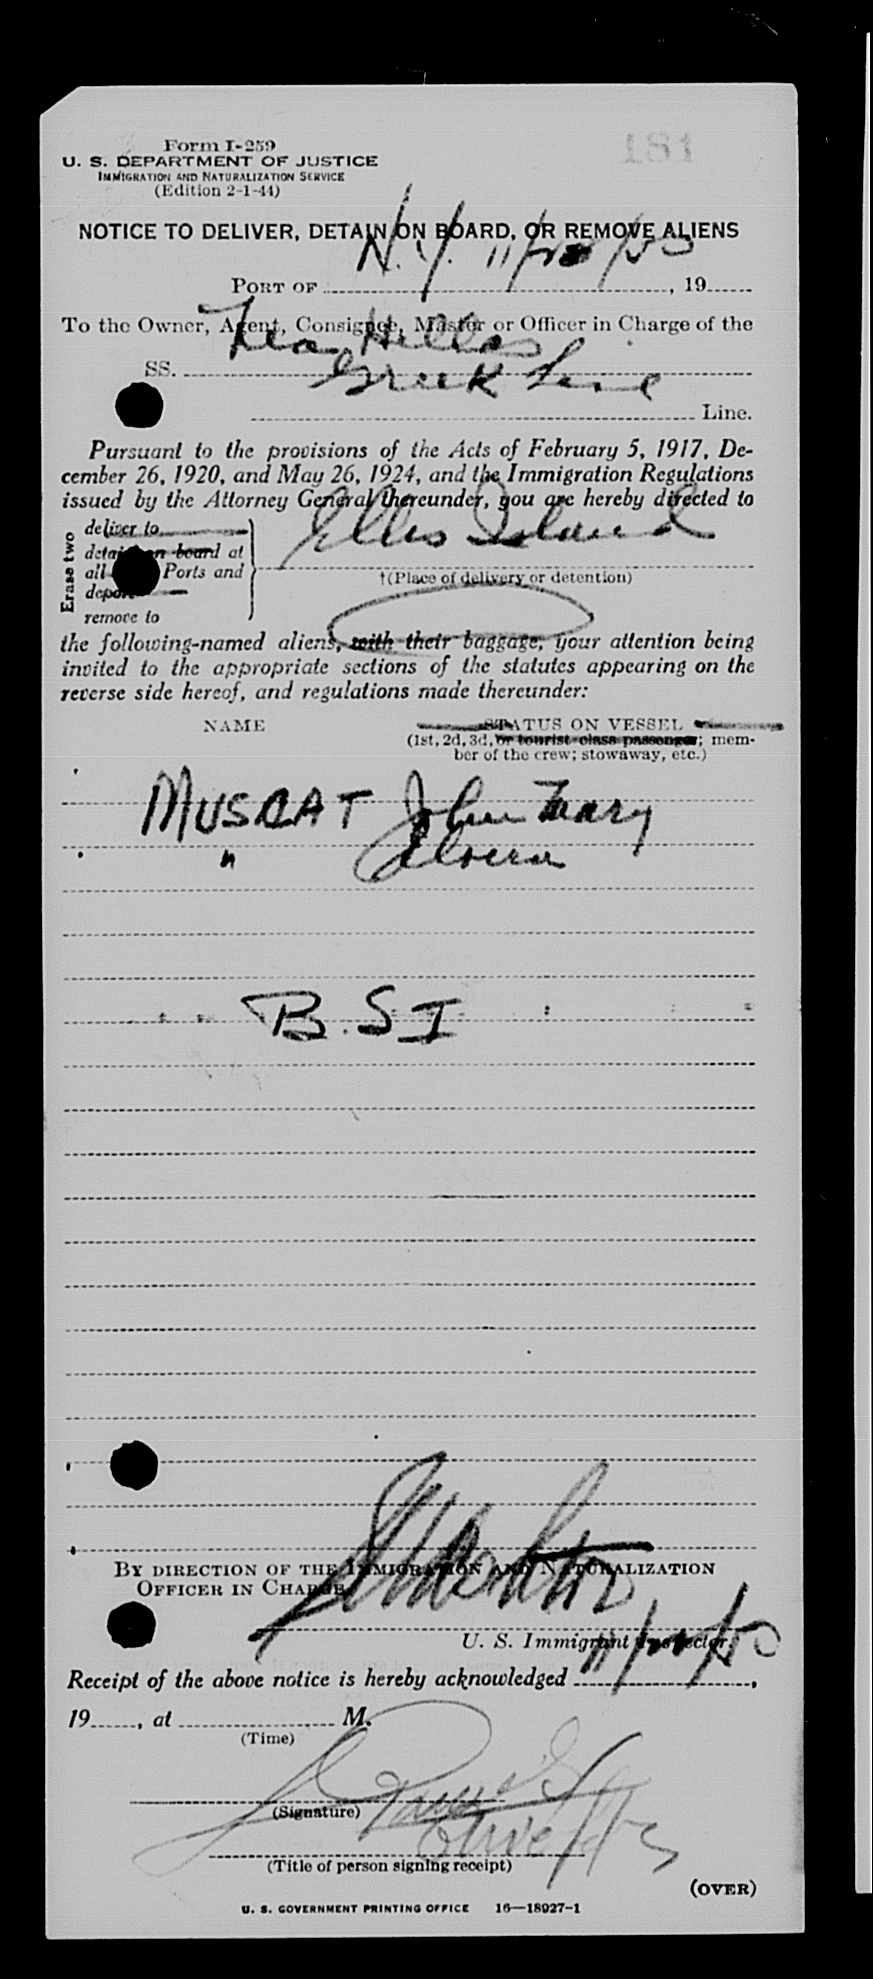 181
Form I-259
U. S. DEPARTMENT OF JUSTICE
IMMIGRATION AND NATURALIZATION SERVICE
(Edition 2-1-44)
NOTICE TO DELIVER, DETAIN ON BOARD, OR REMOVE ALIENS
PORT OF N.Y. , 19
To the Owner, Agent, Consignee, Master or Officer in Charge of the
SS. Nea Hellas
Greek Line Line.
Pursuant to the provisions of the Acts of February 5, 1917, De-
cember 26, 1920, and May 26, 1924, and the Immigration Regulations
issued by the Attorney General thereunder, you are hereby directed to
Erase two
deliver to
detain on board at
all Ports and
deport
remove to
Ellis Island
†(Place of delivery or detention)
the following-named aliens, with their baggage, your attention being
invited to the appropriate sections of the statutes appearing on the
reverse side hereof, and regulations made thereunder:
NAME STATUS ON VESSEL
(1st, 2d, 3d, or tourist class passenger; mem-
ber of the crew; stowaway, etc.)
MUSCAT John Mary
"
B.SI
BY DIRECTION OF THE IMMIGRATION AND NATURALIZATION
OFFICER IN CHARGE
U. S. Immigrant Inspector.
Receipt of the above notice is hereby acknowledged ,
19 , at M.
(Time)
(Signature)
(Title of person signing receipt)
(OVER)
U. S. GOVERNMENT PRINTING OFFICE 16—18927-1